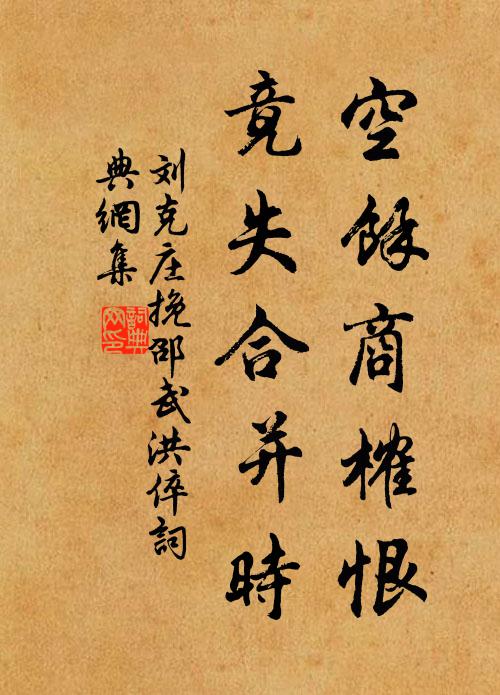 空餘商榷恨
竟失合并時
刘克庄挽邵武洪倅詞
典網集
詞典网印